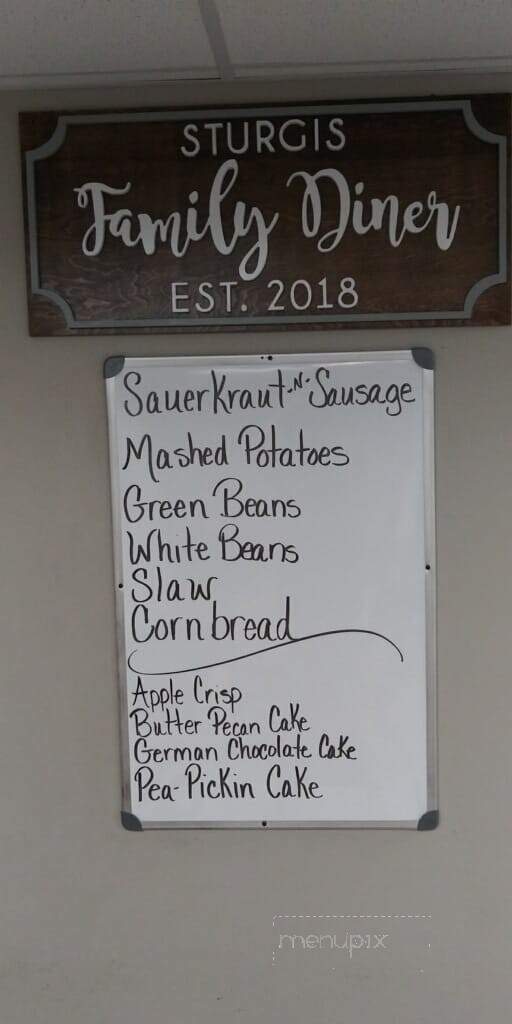 STURGIS
Family Diner
EST. 2018
Sauerkraut-N-Sausage
Mashed Potatoes
Green Beans
White Beans
Slaw
Cornbread
Apple Crisp
Butter Pecan Cake
German Chocolate Cake
Pea-Pickin Cake
menupix